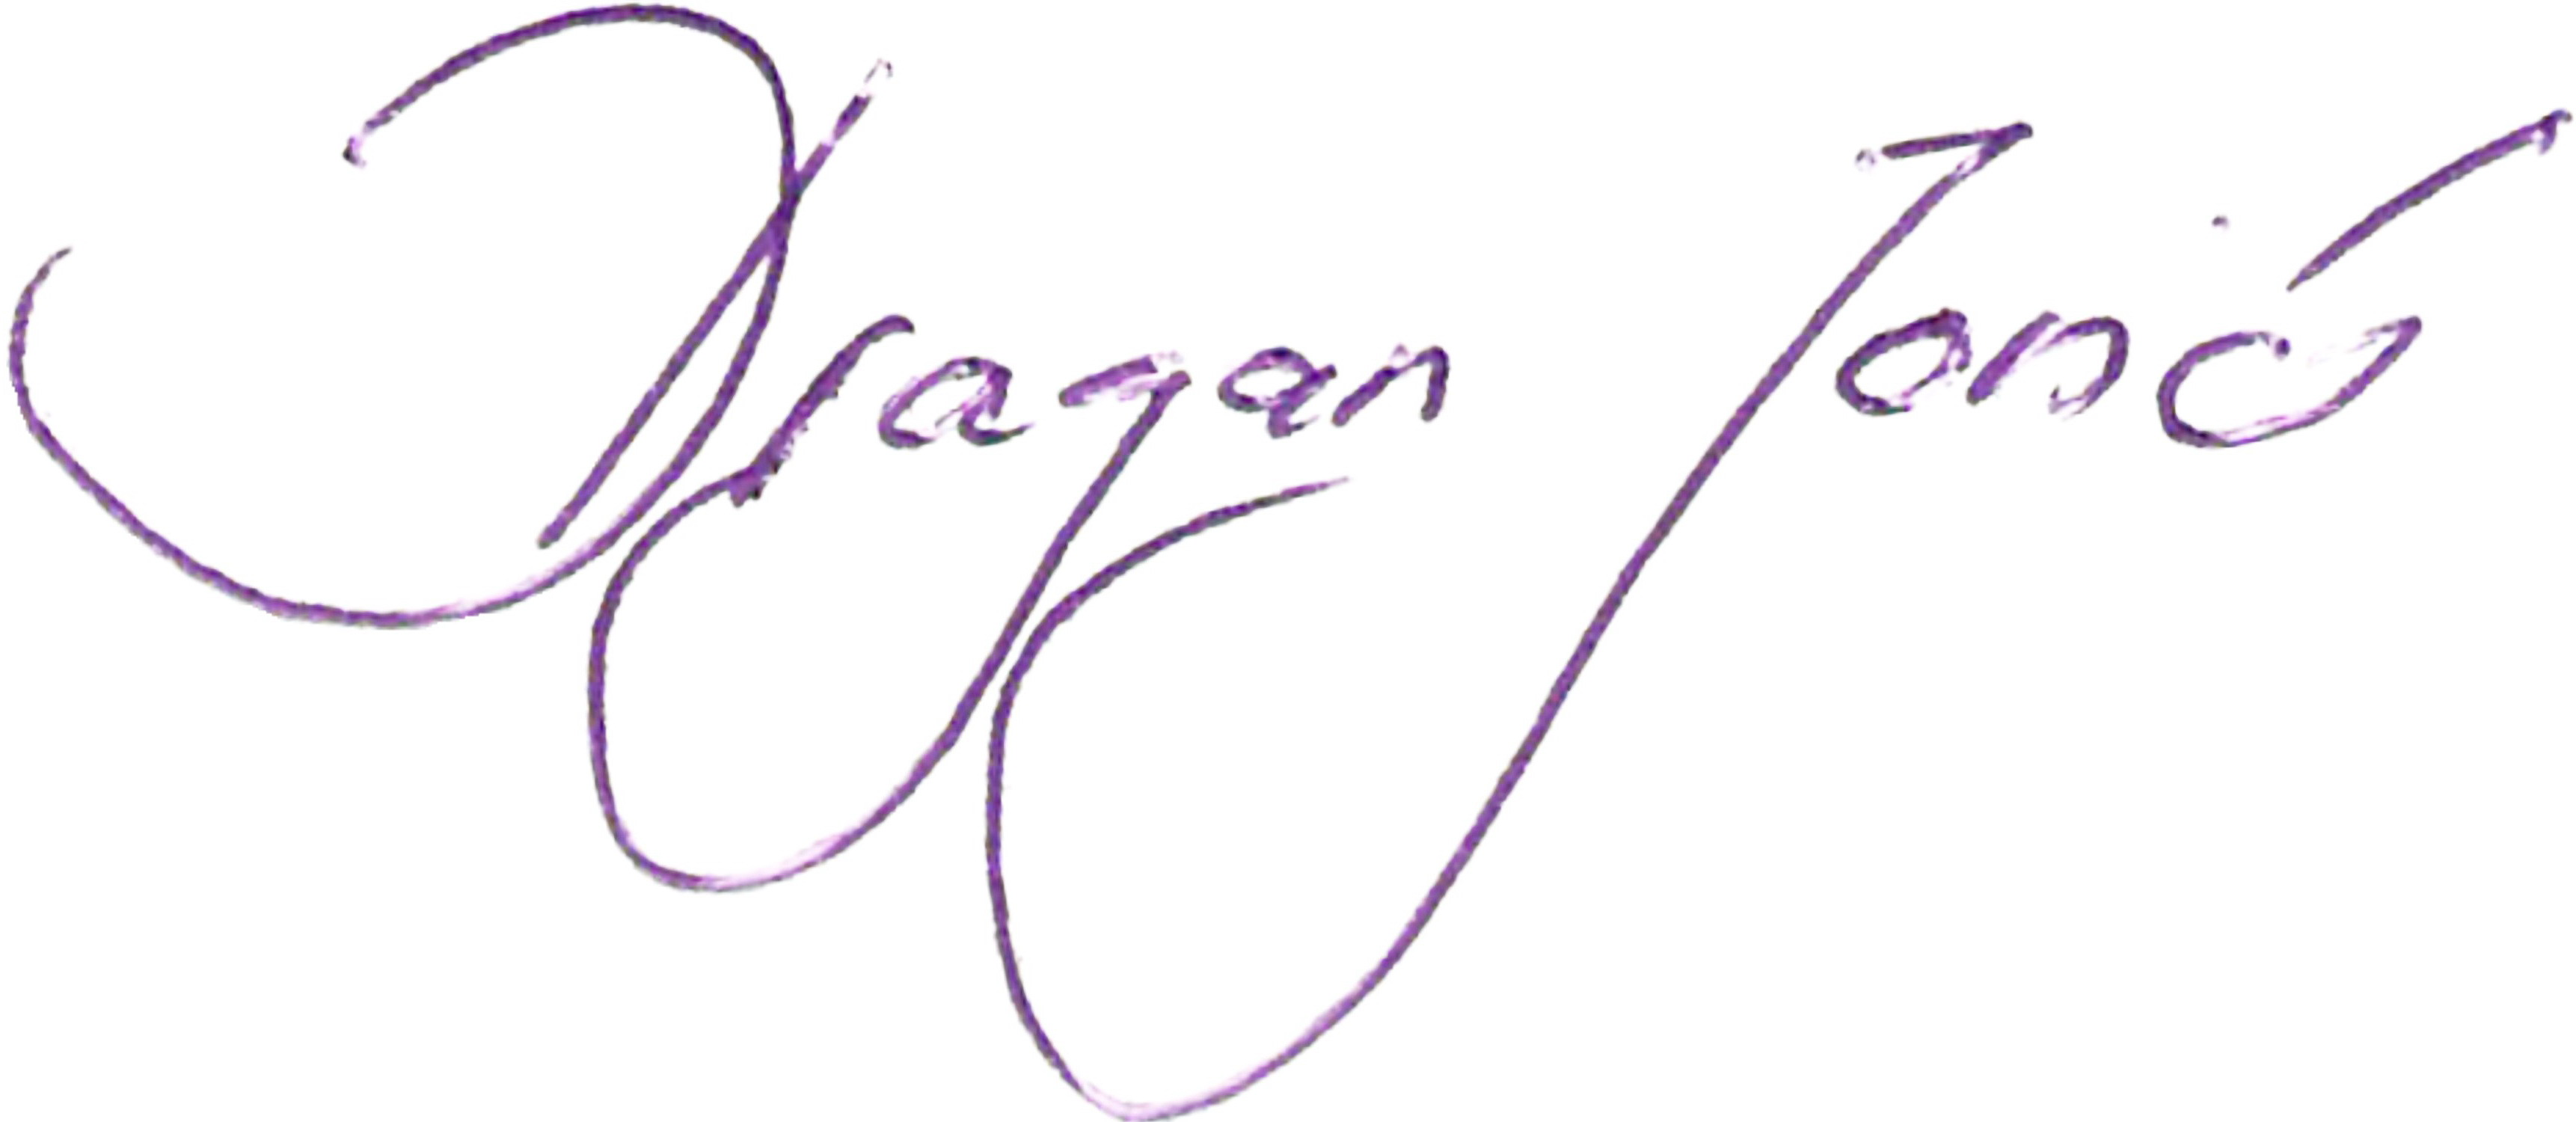 Dragan Jonić